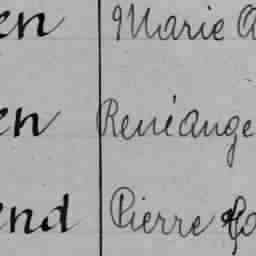 en Marie A
en Reniange
end Pierre